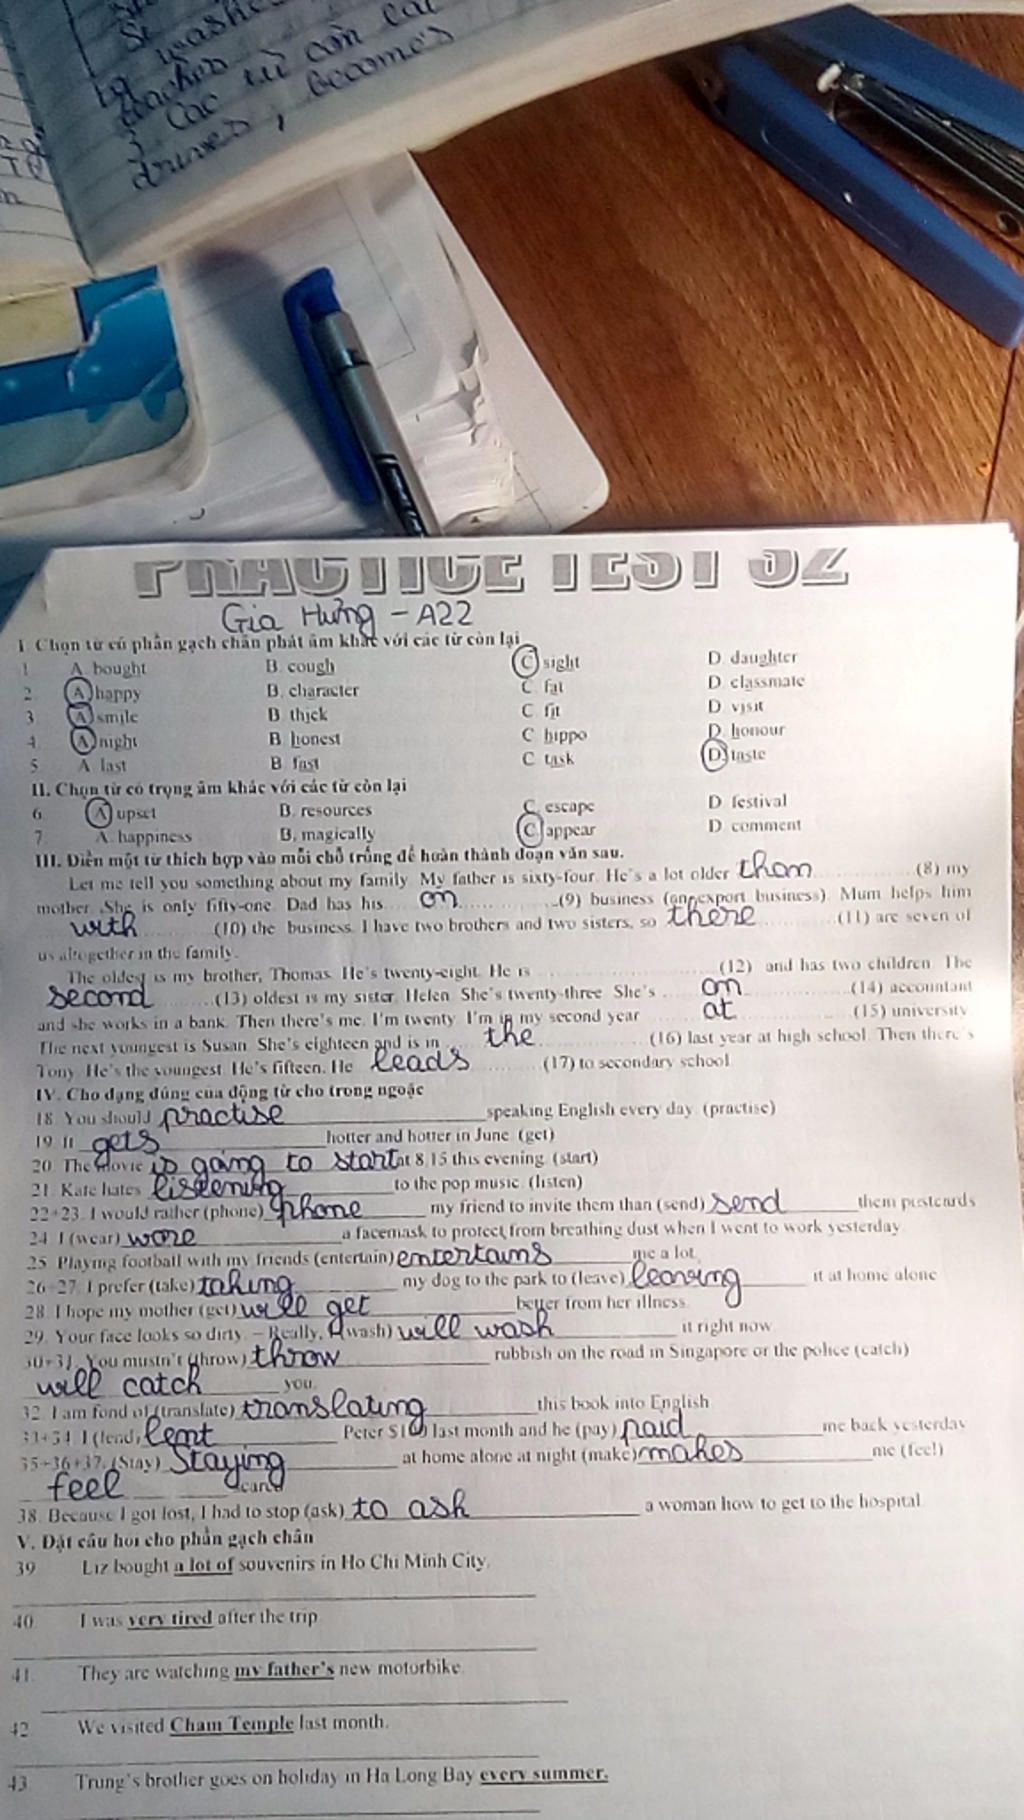 các từ còn
drives, becomes
PRACTICE TEST 32
Gia Hưng - A22
I. Chọn từ có phần gạch chân phát âm khác với các từ còn lại
1. A. bought B. cough C. sight D. daughter
2. A. happy B. character C. fat D. classmate
3. A. smile B. thick C. fit D. visit
4. A. night B. honest C. hippo D. honour
5. A. last B. fast C. task D. taste
II. Chọn từ có trọng âm khác với các từ còn lại
6. A. upset B. resources C. escape D. festival
7. A. happiness B. magically C. appear D. comment
III. Điền một từ thích hợp vào mỗi chỗ trống để hoàn thành đoạn văn sau.
Let me tell you something about my family. My father is sixty-four. He's a lot older than (8) my
mother. She is only fifty-one. Dad has his on (9) business (an export business). Mum helps him
with (10) the business. I have two brothers and two sisters, so there (11) are seven of
us altogether in the family.
The oldest is my brother, Thomas. He's twenty-eight. He is (12) and has two children. The
second (13) oldest is my sister, Helen. She's twenty-three. She's on (14) accountant
and she works in a bank. Then there's me. I'm twenty. I'm in my second year at (15) university
The next youngest is Susan. She's eighteen and is in the (16) last year at high school. Then there's
Tony. He's the youngest. He's fifteen. He leads (17) to secondary school.
IV. Cho dạng đúng của động từ cho trong ngoặc
18. You should practise speaking English every day. (practise)
19. It gets hotter and hotter in June. (get)
20. The movie is going to start at 8.15 this evening. (start)
21. Kate hates liseening to the pop music. (listen)
22+23. I would rather (phone) phone my friend to invite them than (send) send them postcards
24. I (wear) wore a facemask to protect from breathing dust when I went to work yesterday.
25. Playing football with my friends (entertain) entertains me a lot.
26+27. I prefer (take) taking my dog to the park to (leave) leaving it at home alone
28. I hope my mother (get) will get better from her illness.
29. Your face looks so dirty. – Really, I (wash) will wash it right now.
30+31. You mustn't (throw) throw rubbish on the road in Singapore or the police (catch)
will catch you.
32. I am fond of (translate) translating this book into English
33+34. I (lend) lent Peter last month and he (pay) paid me back yesterday
35+36+37. (Stay) Staying at home alone at night (make) makes me (feel)
feel scared
38. Because I got lost, I had to stop (ask) to ask a woman how to get to the hospital.
V. Đặt câu hỏi cho phần gạch chân
39 Liz bought a lot of souvenirs in Ho Chi Minh City.
40. I was very tired after the trip.
41. They are watching my father's new motorbike.
42 We visited Cham Temple last month.
43 Trung's brother goes on holiday in Ha Long Bay every summer.